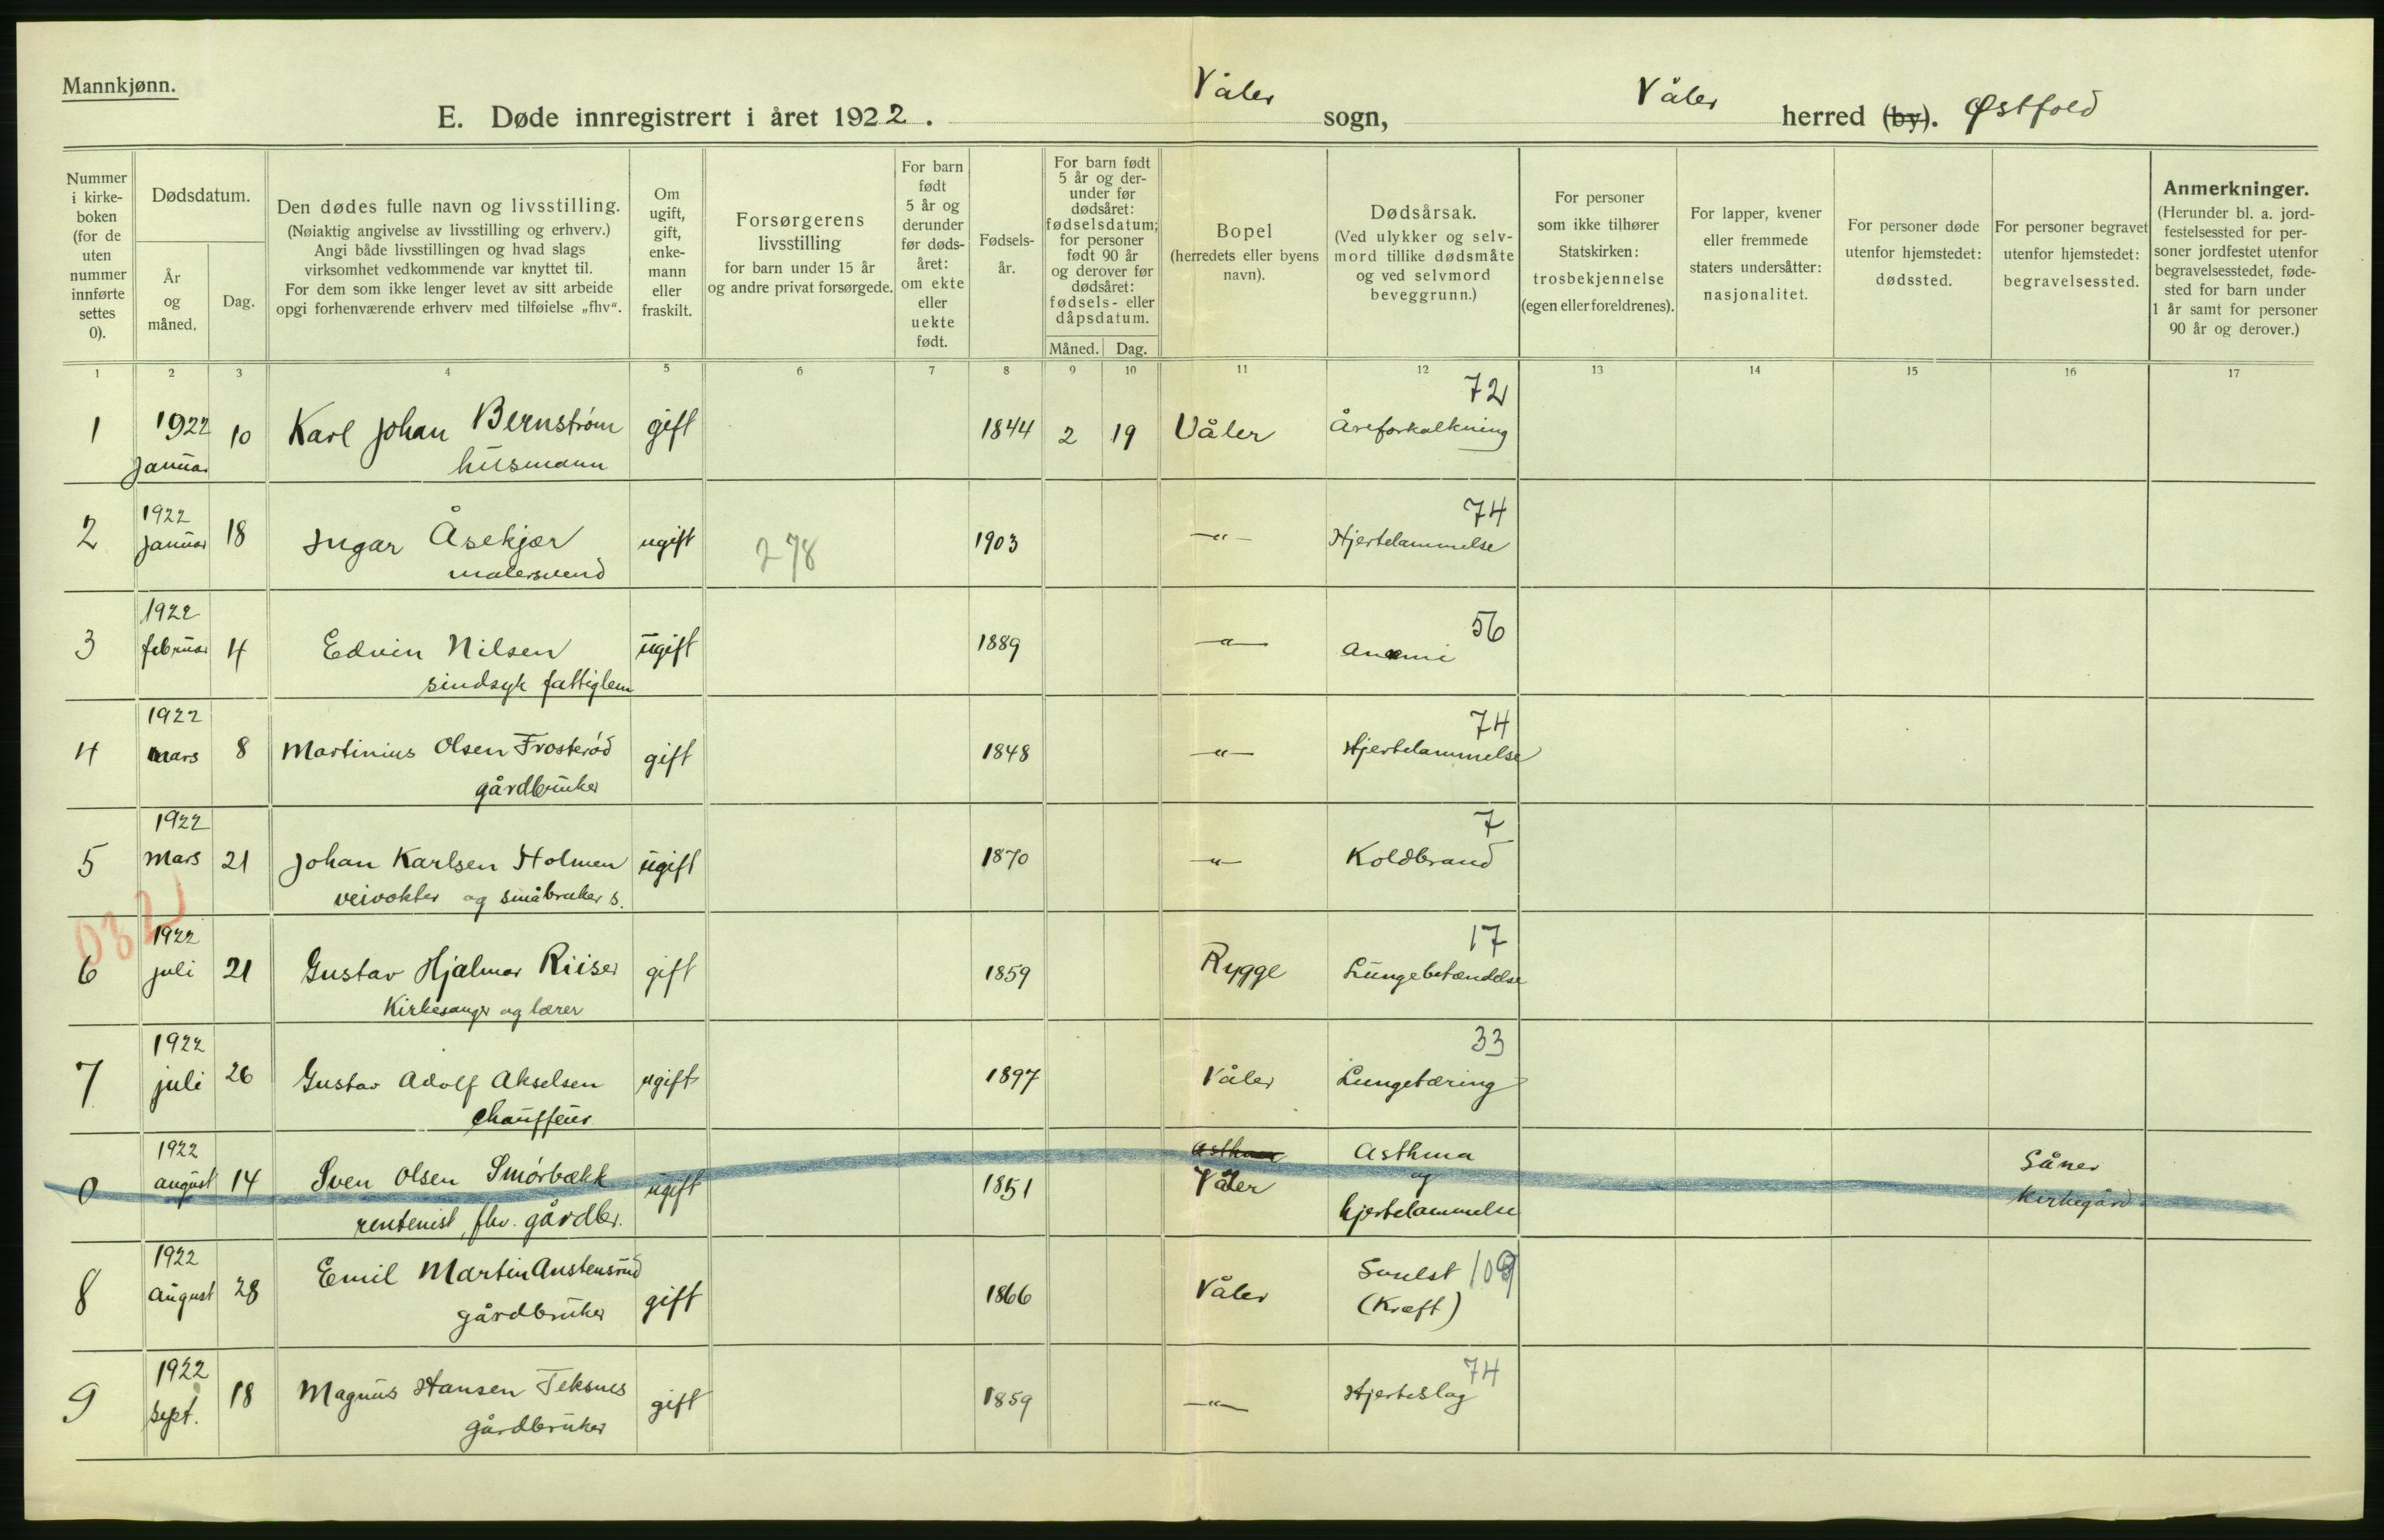 Mannkjønn.
E. Døde innregistrert i året 1922. Våler sogn, Våler herred (by). Østfold
Nummer i kirke- boken (for de uten nummer innførte settes 0).
Dødsdatum.
År og måned.
Dag.
Den dødes fulle navn og livsstilling.
(Nøiaktig angivelse av livsstilling og erhverv.)
Angi både livsstillingen og hvad slags
virksomhet vedkommende var knyttet til.
For dem som ikke lenger levet av sitt arbeide
opgi forhenværende erhverv med tilføielse „fhv“.
Om ugift, gift, enke- mann eller fraskilt.
Forsørgerens
livsstilling
for barn under 15 år
og andre privat forsørgede.
For barn født 5 år og derunder før døds- året: om ekte eller uekte født.
Fødsels- år.
For barn født 5 år og der- under før dødsåret: fødselsdatum; for personer født 90 år og derover før dødsåret: fødsels- eller dåpsdatum.
Måned. Dag.
Bopel
(herredets eller byens
navn).
Dødsårsak.
(Ved ulykker og selv-
mord tillike dødsmåte
og ved selvmord
beveggrunn.)
For personer
som ikke tilhører
Statskirken:
trosbekjennelse
(egen eller foreldrenes).
For lapper, kvener
eller fremmede
staters undersåtter:
nasjonalitet.
For personer døde
utenfor hjemstedet:
dødssted.
For personer begravet
utenfor hjemstedet:
begravelsessted.
Anmerkninger.
(Herunder bl. a. jord-
festelsessted for per-
soner jordfestet utenfor
begravelsesstedet, føde-
sted for barn under
1 år samt for personer
90 år og derover.)
1 2 3 4 5 6 7 8 9 10 11 12 13 14 15 16 17
72
1 1922 10 Karl Johan Bernstrøm gift 1844 2 19 Våler Åreforkalkning
Januar husmann
1922 74
2 Januar 18 Ingar Åsekjær ugift 278 1903 —„— Hjertelammelse
malersvend
1922 56
3 februar 4 Edvin Nilsen ugift 1889 —„— Anæmi
sindsyk fattiglem
1922 74
4 mars 8 Martinius Olsen Frosterød gift 1848 —„— Hjertelammelse
gårdbruker
1922 7
5 mars 21 Johan Karlsen Holmen ugift 1870 —„— Koldbrand
veivokter og småbruker s.
032
1922 17
6 juli 21 Gustav Hjalmar Riiser gift 1859 Rygge Lungebetændelse
Kirkesanger og lærer
1922 33
7 juli 26 Gustav Adolf Akselsen ugift 1897 Våler Lungetæring
Chauffeur
1922 Asthma Asthma Såner
0 august 14 Sven Olsen Smørbækk ugift 1851 Våler og Kirkegård
rentenist, fhv. gårdbr. hjertelammelse
1922 Svulst 109
8 August 28 Emil Martin Austensrud gift 1866 Våler (Kræft)
gårdbruker
1922 74
9 sept. 18 Magnus Hansen Teksnes gift 1859 —„— Hjerteslag
gårdbruker